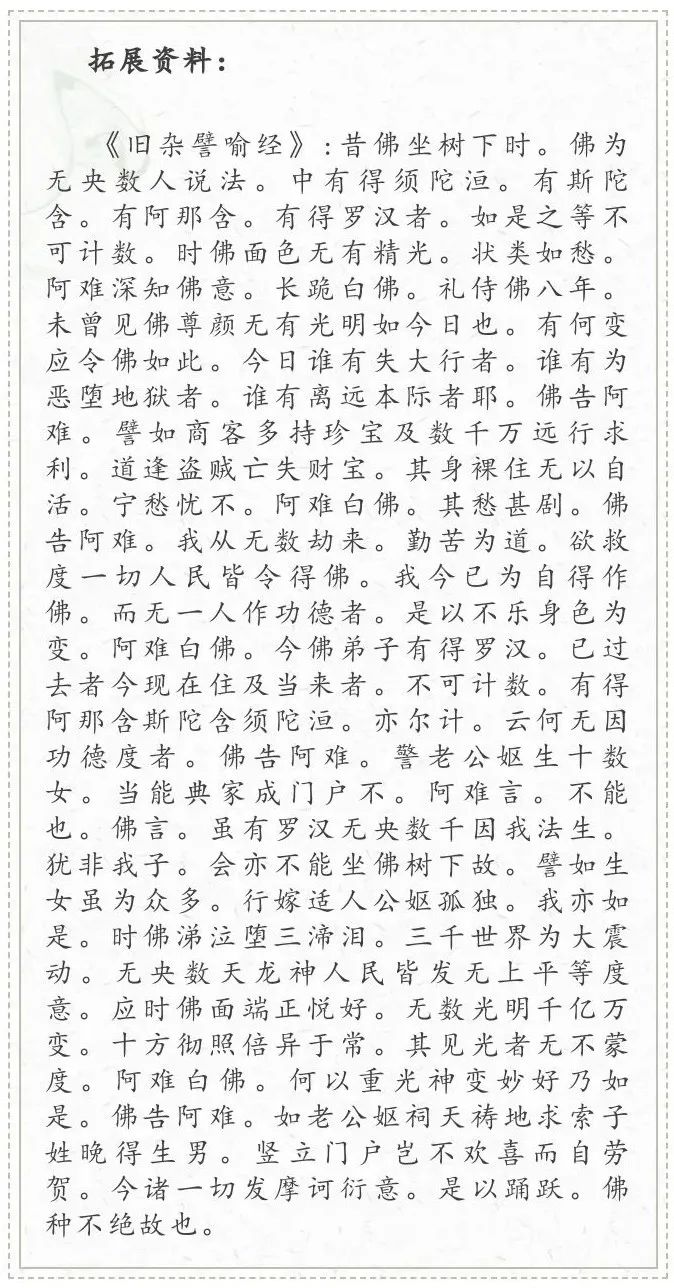 拓展资料：
《旧杂譬喻经》:昔佛坐树下时。佛为
无央数人说法。中有得须陀洹。有斯陀
含。有阿那含。有得罗汉者。如是之等不
可计数。时佛面色无有精光。状类如愁。
阿难深知佛意。长跪白佛。礼侍佛八年。
未曾见佛尊颜无有光明如今日也。有何变
应令佛如此。今日谁有失大行者。谁有为
恶堕地狱者。谁有离远本际者耶。佛告阿
难。譬如商客多持珍宝及数千万远行求
利。道逢盗贼亡失财宝。其身裸住无以自
活。宁愁忧不。阿难白佛。其愁甚剧。佛
告阿难。我从无数劫来。勤苦为道。欲救
度一切人民皆令得佛。我今已为自得作
佛。而无一人作功德者。是以不乐身色为
变。阿难白佛。今佛弟子有得罗汉。已过
去者今现在住及当来者。不可计数。有得
阿那含斯陀含须陀洹。亦尔计。云何无因
功德度者。佛告阿难。警老公妪生十数
女。当能典家成门户不。阿难言。不能
也。佛言。虽有罗汉无央数千因我法生。
犹非我子。会亦不能坐佛树下故。譬如生
女虽为众多。行嫁适人公妪孤独。我亦如
是。时佛涕泣堕三渧泪。三千世界为大震
动。无央数天龙神人民皆发无上平等度
意。应时佛面端正悦好。无数光明千亿万
变。十方彻照倍异于常。其见光者无不蒙
度。阿难白佛。何以重光神变妙好乃如
是。佛告阿难。如老公妪祠天祷地求索子
姓晚得生男。竖立门户岂不欢喜而自劳
贺。今诸一切发摩诃衍意。是以踊跃。佛
种不绝故也。